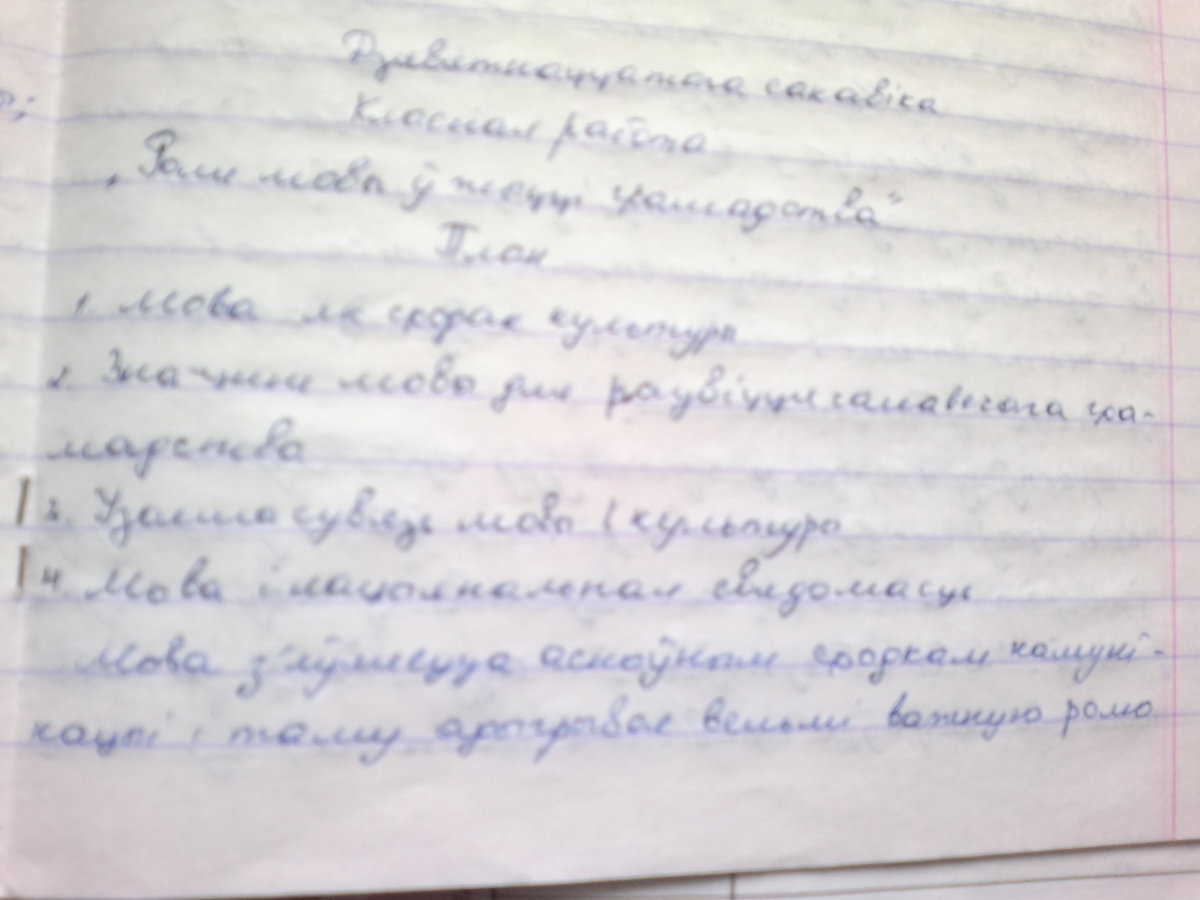 Дзевятнаццатага сакавіка
Класная работа
„Роля мовы ў жыцці грамадства“
План
1. Мова як сродак культуры
2. Значэнне мовы для развіцця чалавечага гра-
мадства
3. Узаемасувязь мовы і культуры
4. Мова і нацыянальная свядомасць
Мова з'яўляецца асноўным сродкам камуні-
кацыі і таму адыгрывае вельмі важную ролю